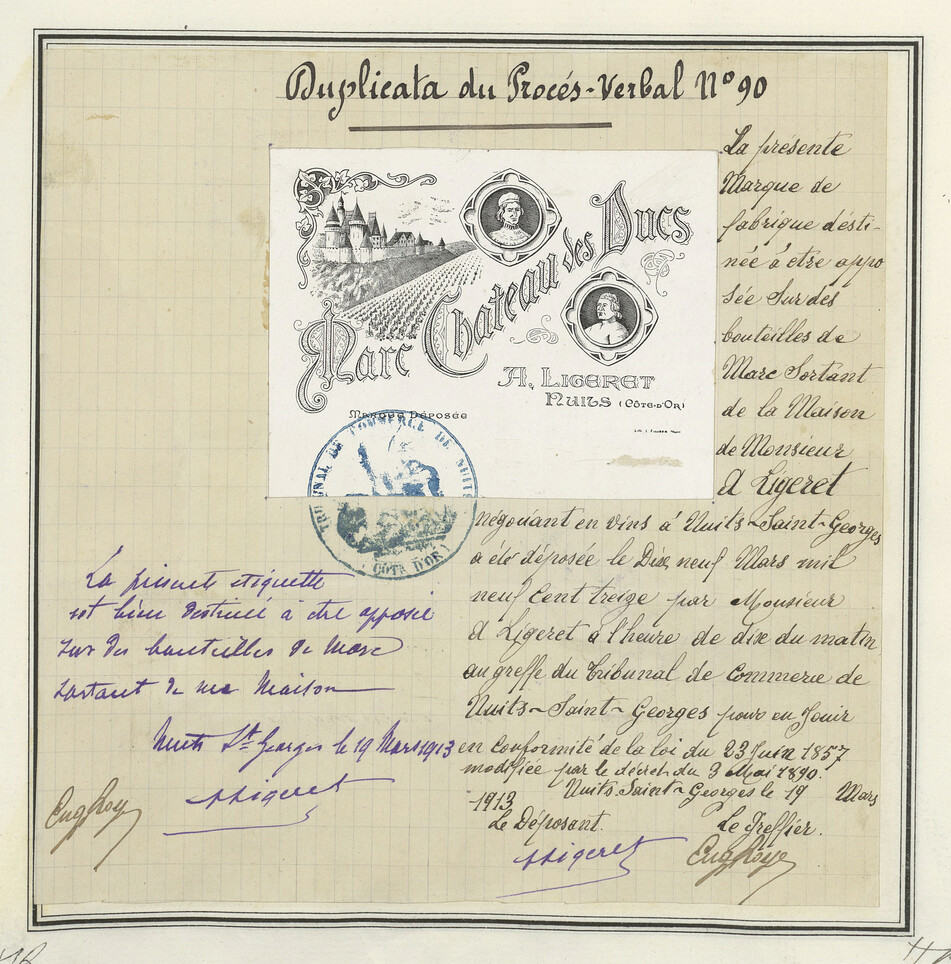 Duplicata du Procés-Verbal Nº 90
La présente
Marque de
fabrique désti-
née à être appo
sée sur des
bouteilles de
Marc Sortant
de la Maison
de Monsieur
A Ligeret
négociant en vins à Nuits-Saint-Georges
a été déposée le Dix neuf Mars mil
neuf Cent treize par Monsieur
A Ligeret à l'heure de dix du matin
au greffe du Tribunal de Commerce de
Nuits-Saint-Georges pour en Jouir
en conformité de la loi du 23 Juin 1857
modifiée par le décret du 3 Mai 1890.
Nuits-Saint-Georges le 19 Mars
1913
Le Déposant. Le Greffier.
ALigeret Eug Roye
Marc Chateau des Ducs
A. LIGERET
NUITS (CÔTE-D'OR)
MARQUE DÉPOSÉE
TRIBUNAL DE COMMERCE DE NUITS
(CÔTE D'OR)
La présente étiquette
est bien destinée à être apposée
sur des bouteilles de marc
sortant de ma maison
Nuits St Georges le 19 Mars 1913
ALigeret
Eug Roye